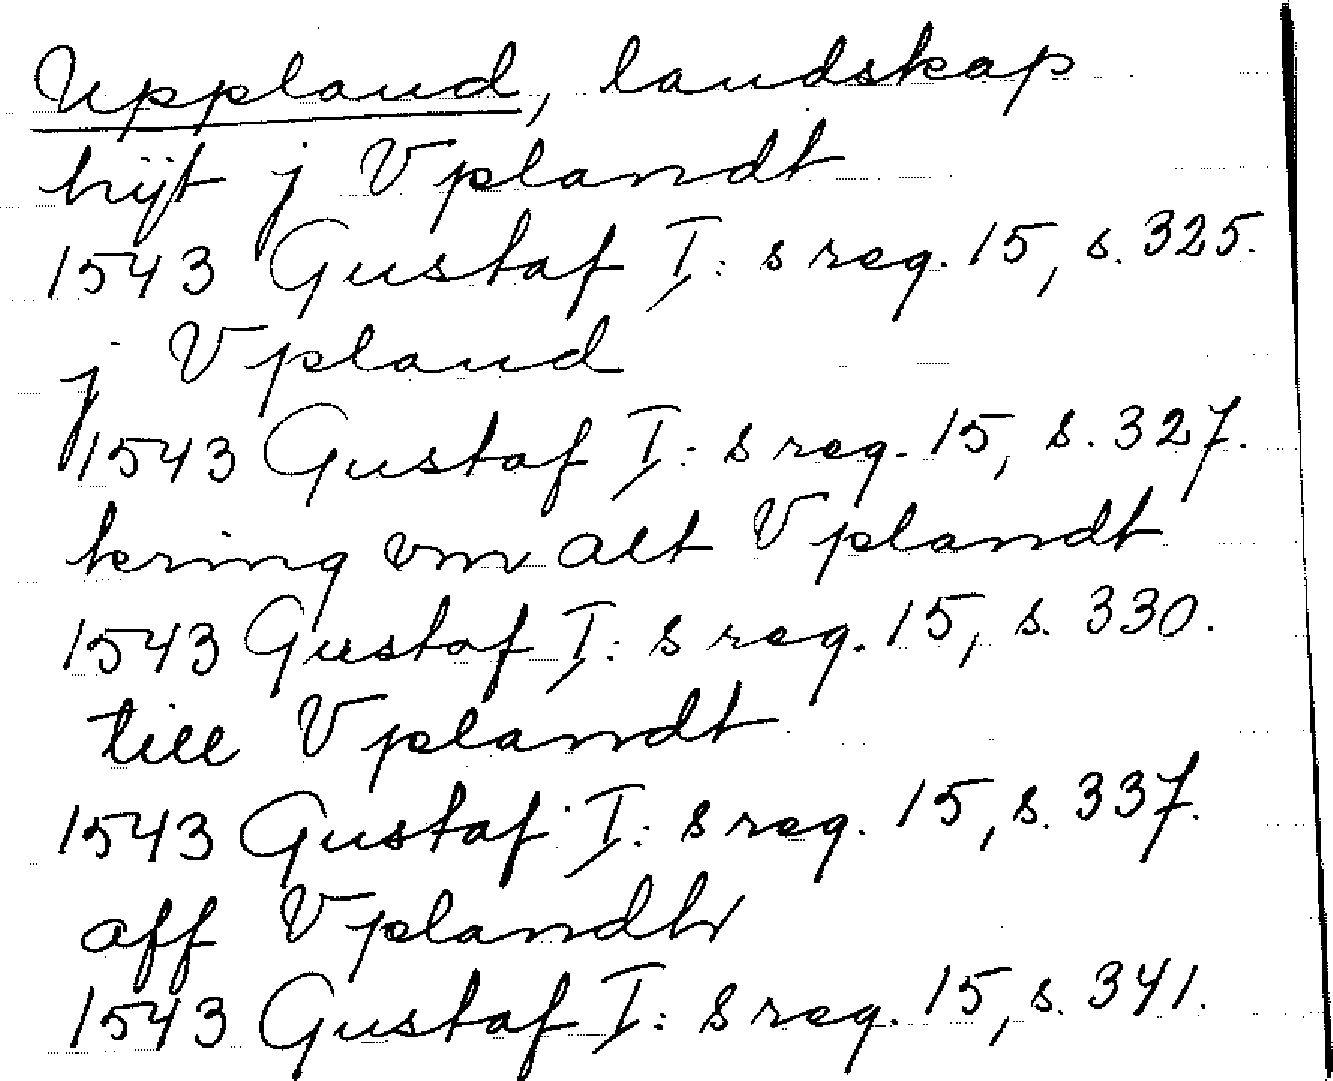 Uppland, landskap
hijt j Vplandt
1543 Gustaf I:s reg. 15, s. 325.
j Vpland
1543 Gustaf I:s reg. 15, s. 327.
kring vm alt Vplandt
1543 Gustaf I:s reg. 15, s. 330.
till Vplandt
1543 Gustaf I:s reg. 15, s. 337.
aff Vplandh
1543 Gustaf I:s reg. 15, s. 341.